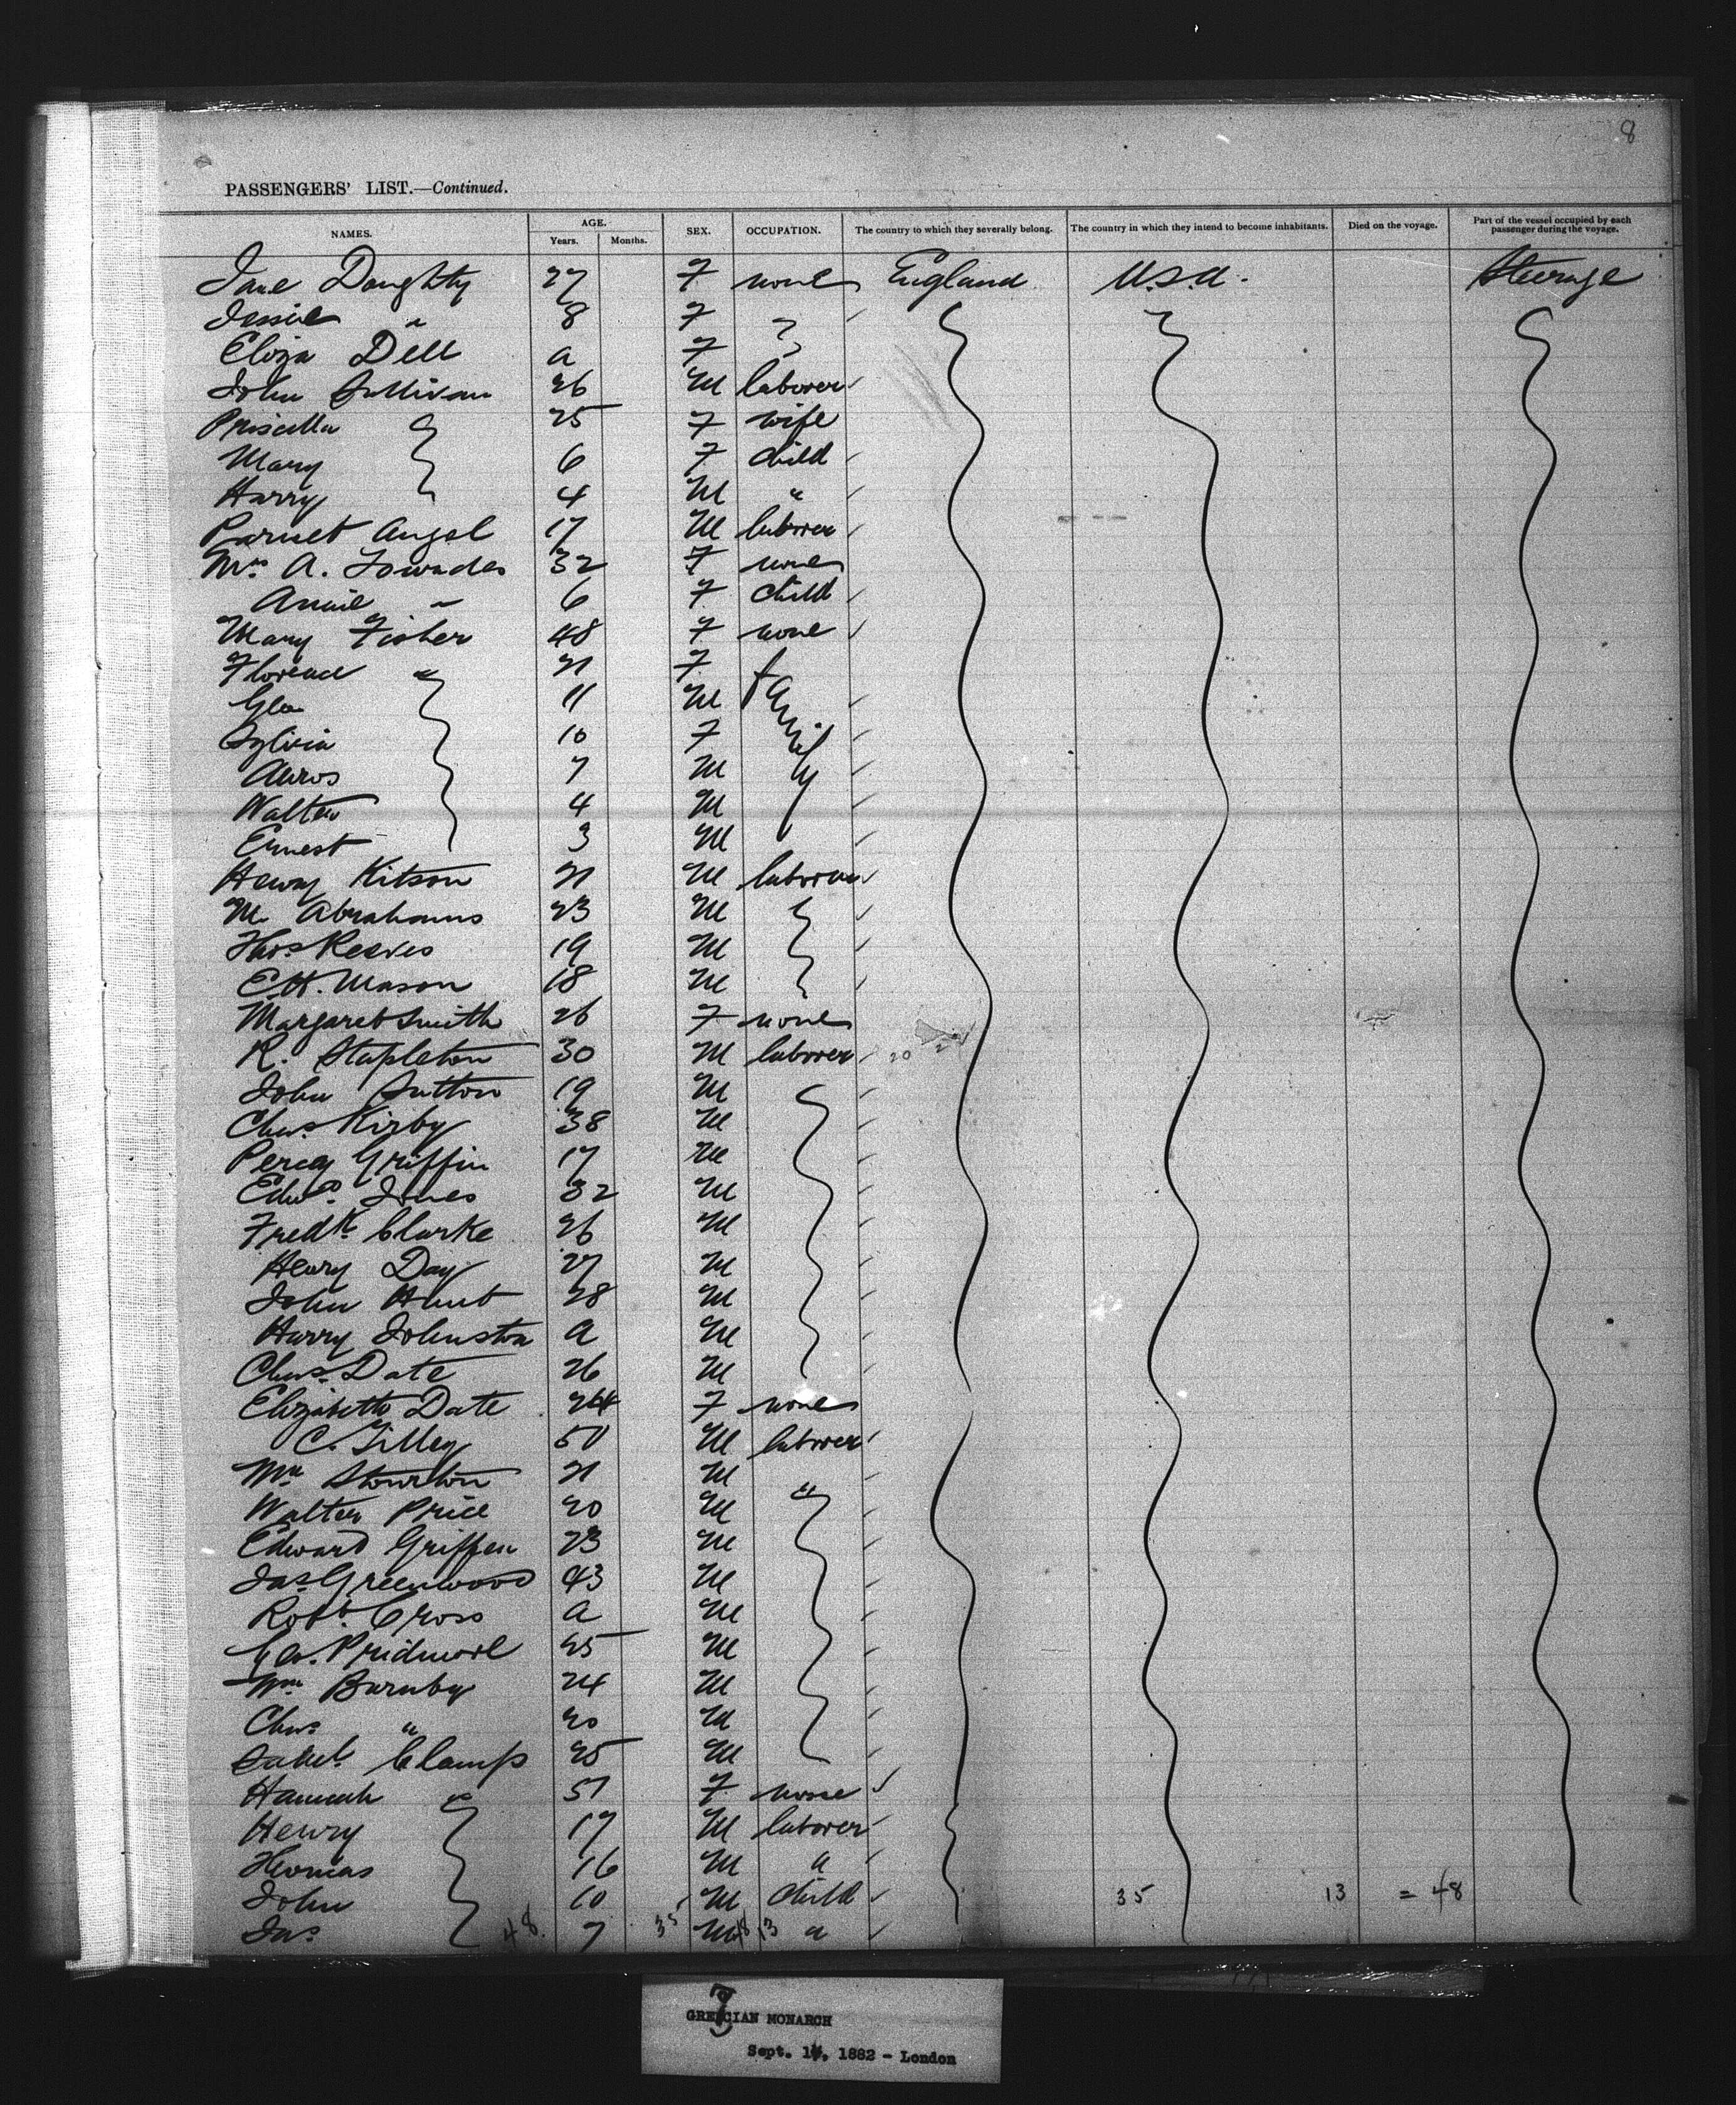 8
PASSENGERS' LIST.—Continued.
NAMES. AGE. Years. Months. SEX. OCCUPATION. The country to which they severally belong. The country in which they intend to become inhabitants. Died on the voyage. Part of the vessel occupied by each passenger during the voyage.
Jane Doughty 27 F none England U.S.A. Steerage
Jessie " 8 F
Eliza Dell a F
John Sullivan 26 M laborer
Priscilla 25 F wife
Mary 6 F child
Harry 4 M "
Angel 17 M laborer
Mrs A. Lowndes 32 F none
Annie " 6 F child
Mary Fisher 48 F none
Florence " 21 F family
Geo 11 M
Sylvia 10 F
7 M
Walter 4 M
Ernest 3 M
Henry Kitson 21 M laborer
M. Abrahams 23 M
Thos Reeves 19 M
E.H. Mason 18 M
Margaret Smith 26 F none
R. Stapleton 30 M laborer 20
John Sutton 19 M
Chas. Kirby 38 M
Percy Griffin 17 M
Edwd. Jones 32 M
Fredk. Clarke 26 M
Henry Day 27 M
John Hunt 28 M
Harry Johnston a M
Chas. Date 26 M
Elizabeth Date 24 F none
C. Tilley 50 M laborer
Wm Stourton 21 M "
Walter Price 20 M
Edward Griffen 23 M
Jas Greenwood 43 M
Robt. Cross a M
Geo. Pridmore 25 M
Wm Barnby 24 M
Chas " 20 M
Saml. Clamp 25 M
Hannah " 51 F none
Henry 17 M laborer
Thomas 16 M "
John 10 M child 35 13 = 48
Jas 48 7 35 M 48 13 "
GRECIAN MONARCH
Sept. 14, 1882 - London